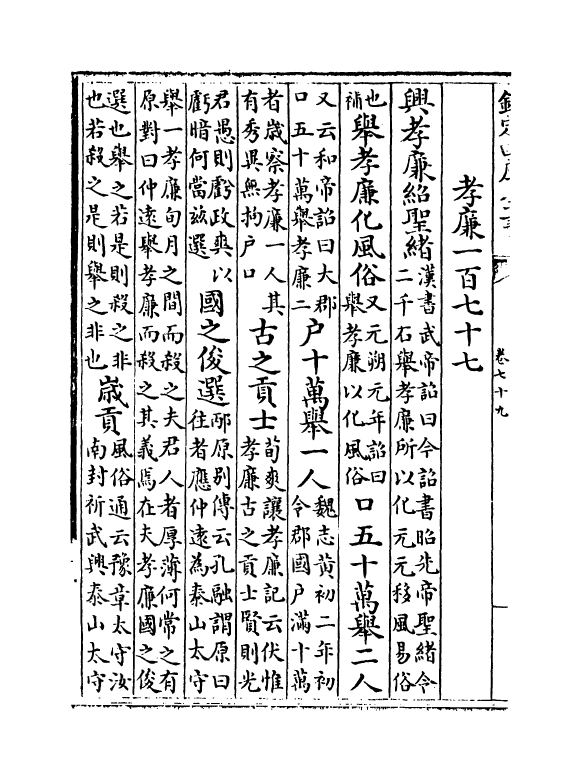 欽定四庫全書
卷七十九
孝廉一百七十七
興孝廉紹聖緒漢書武帝詔曰今詔書昭先帝聖緒令二千石舉孝廉所以化元元移風易俗
也補舉孝廉化風俗又元朔元年詔曰舉孝廉以化風俗口五十萬舉二人
又云和帝詔曰大郡口五十萬舉孝廉二户十萬舉一人魏志黄初二年初令郡國户滿十萬
者嵗察孝廉一人其有秀異無拘户口古之貢士荀爽讓孝廉記云伏惟孝廉古之貢士賢則光
君愚則虧政爽以虧暗何當該選國之俊選邴原别傳云孔融謂原曰往者應仲逺為泰山太守
舉一孝廉旬月之間而殺之夫君人者厚薄何常之有原對曰仲逺舉孝廉而殺之其義焉在夫孝廉國之俊
選也舉之若是則殺之非也若殺之是則舉之非也嵗貢風俗通云豫章太守汝南封祈武興泰山太守